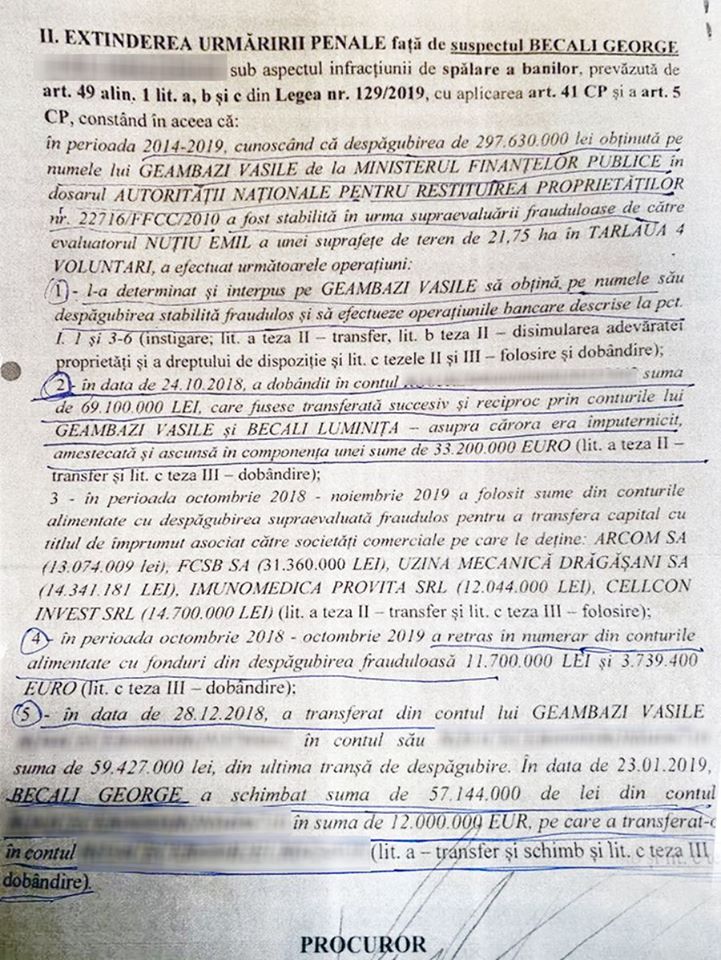 II. EXTINDEREA URMĂRIRII PENALE față de suspectul BECALI GEORGE
sub aspectul infracțiunii de spălare a banilor, prevăzută de
art. 49 alin. 1 lit. a, b și c din Legea nr. 129/2019, cu aplicarea art. 41 CP și a art. 5
CP, constând în aceea că:
în perioada 2014-2019, cunoscând că despăgubirea de 297.630.000 lei obținută pe
numele lui GEAMBAZI VASILE de la MINISTERUL FINANȚELOR PUBLICE în
dosarul AUTORITĂȚII NAȚIONALE PENTRU RESTITUIREA PROPRIETĂȚILOR
nr. 22716/FFCC/2010 a fost stabilită în urma supraevaluării frauduloase de către
evaluatorul NUȚIU EMIL a unei suprafețe de teren de 21,75 ha în TARLAUA 4
VOLUNTARI, a efectuat următoarele operațiuni:
1 - l-a determinat și interpus pe GEAMBAZI VASILE să obțină, pe numele său
despăgubirea stabilită fraudulos și să efectueze operațiunile bancare descrise la pct.
I. 1 și 3-6 (instigare; lit. a teza II – transfer, lit. b teza II – disimularea adevăratei
proprietăți și a dreptului de dispoziție și lit. c tezele II și III – folosire și dobândire);
2 - în data de 24.10.2018, a dobândit în contul suma
de 69.100.000 LEI, care fusese transferată succesiv și reciproc prin conturile lui
GEAMBAZI VASILE și BECALI LUMINIȚA – asupra cărora era împuternicit,
amestecată și ascunsă în componența unei sume de 33.200.000 EURO (lit. a teza II –
transfer și lit. c teza III – dobândire);
3 - în perioada octombrie 2018 - noiembrie 2019 a folosit sume din conturile
alimentate cu despăgubirea supraevaluată fraudulos pentru a transfera capital cu
titlul de împrumut asociat către societăți comerciale pe care le deține: ARCOM SA
(13.074.009 lei), FCSB SA (31.360.000 LEI), UZINA MECANICĂ DRĂGĂȘANI SA
(14.341.181 LEI), IMUNOMEDICA PROVITA SRL (12.044.000 LEI), CELLCON
INVEST SRL (14.700.000 LEI) (lit. a teza II – transfer și lit. c teza III – folosire);
4 - în perioada octombrie 2018 - octombrie 2019 a retras în numerar din conturile
alimentate cu fonduri din despăgubirea frauduloasă 11.700.000 LEI și 3.739.400
EURO (lit. c teza III – dobândire);
5 - în data de 28.12.2018, a transferat din contul lui GEAMBAZI VASILE
în contul său
suma de 59.427.000 lei, din ultima tranșă de despăgubire. În data de 23.01.2019,
BECALI GEORGE a schimbat suma de 57.144.000 de lei din contul
în suma de 12.000.000 EUR, pe care a transferat-o
în contul (lit. a – transfer și schimb și lit. c teza III
dobândire).
PROCUROR